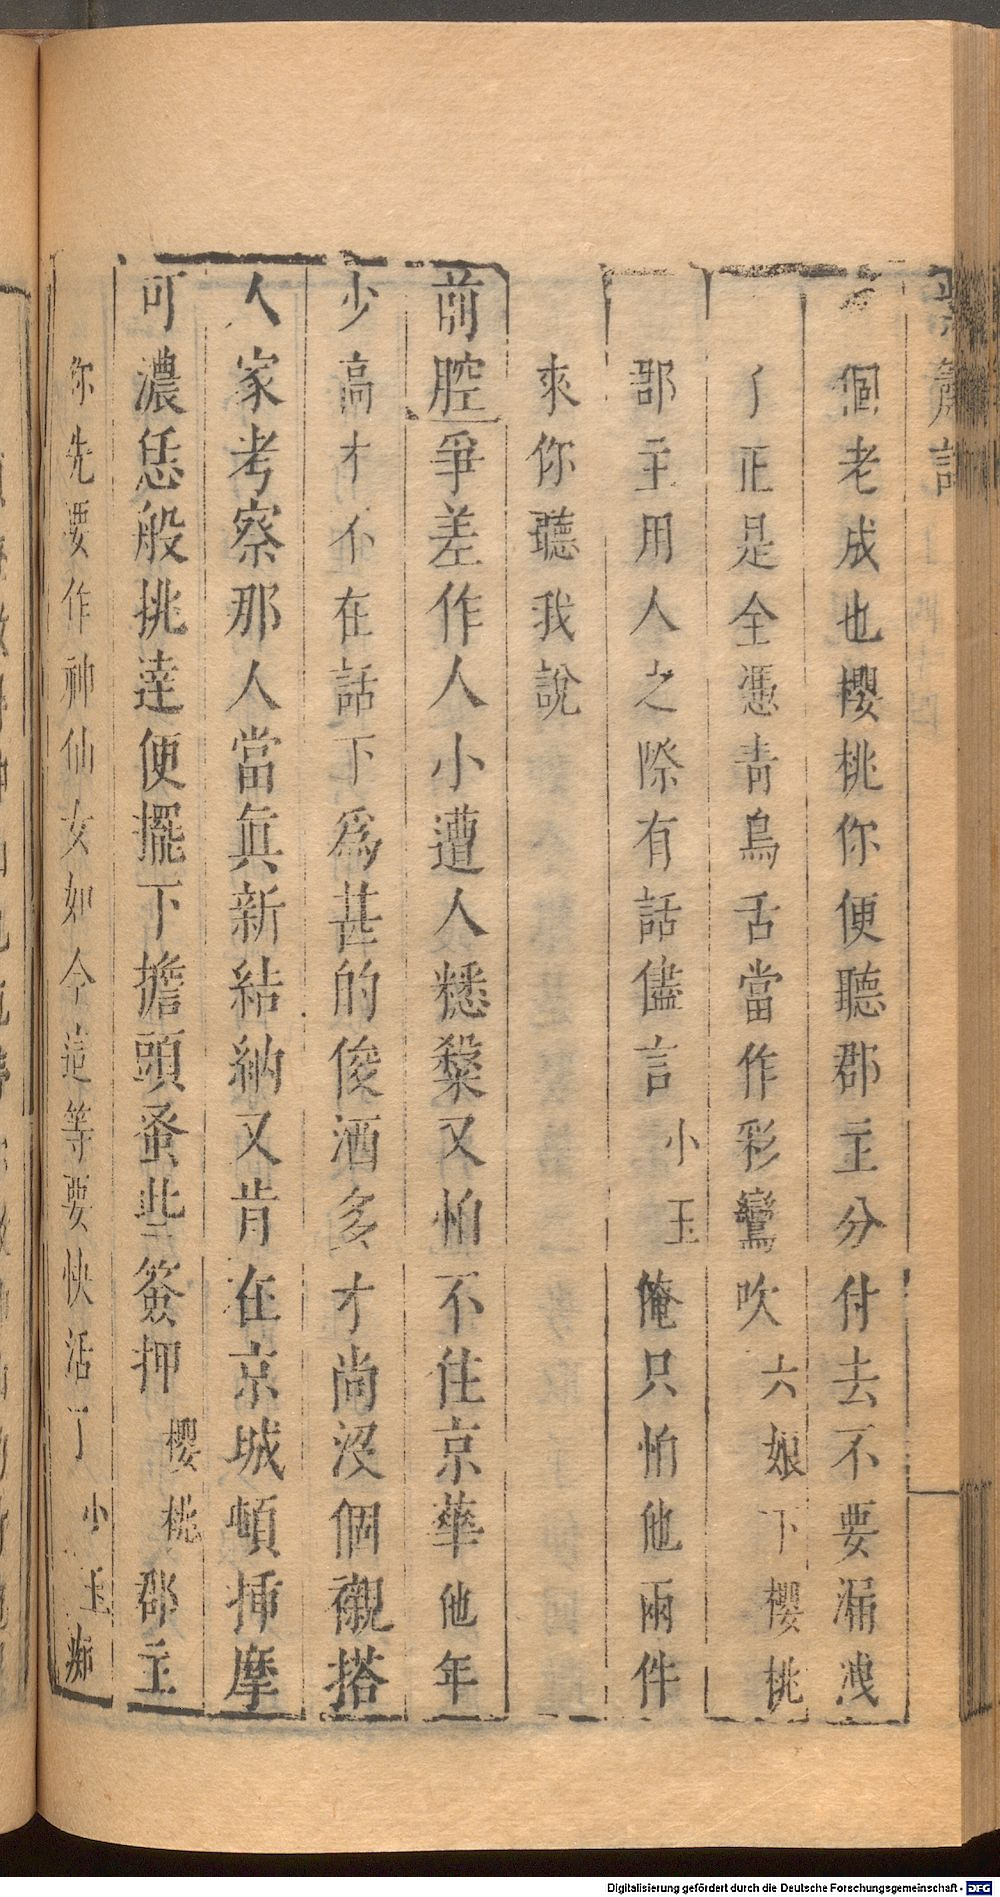 紫簫記
個老成也櫻桃你便聽郡主分付去不要漏洩
了正是全憑青鳥舌當作彩鸞吹 六娘下 櫻桃
郡主用人之際有話儘言 小玉 俺只怕他兩件
來你聽我說
前腔 爭差作人小遭人𥻦𥻦又怕不住京華他年
少高才不在話下為甚的俊酒多才尚沒個襯搭
人家考察那人當真新結納又肯在京城頓揷摩
可濃恁般挑達便擺下擔頭蚤些簽押 櫻桃 郡主
你先要作神仙女如今這等要快活了 小玉 痴
Digitalisierung gefördert durch die Deutsche Forschungsgemeinschaft - DFG